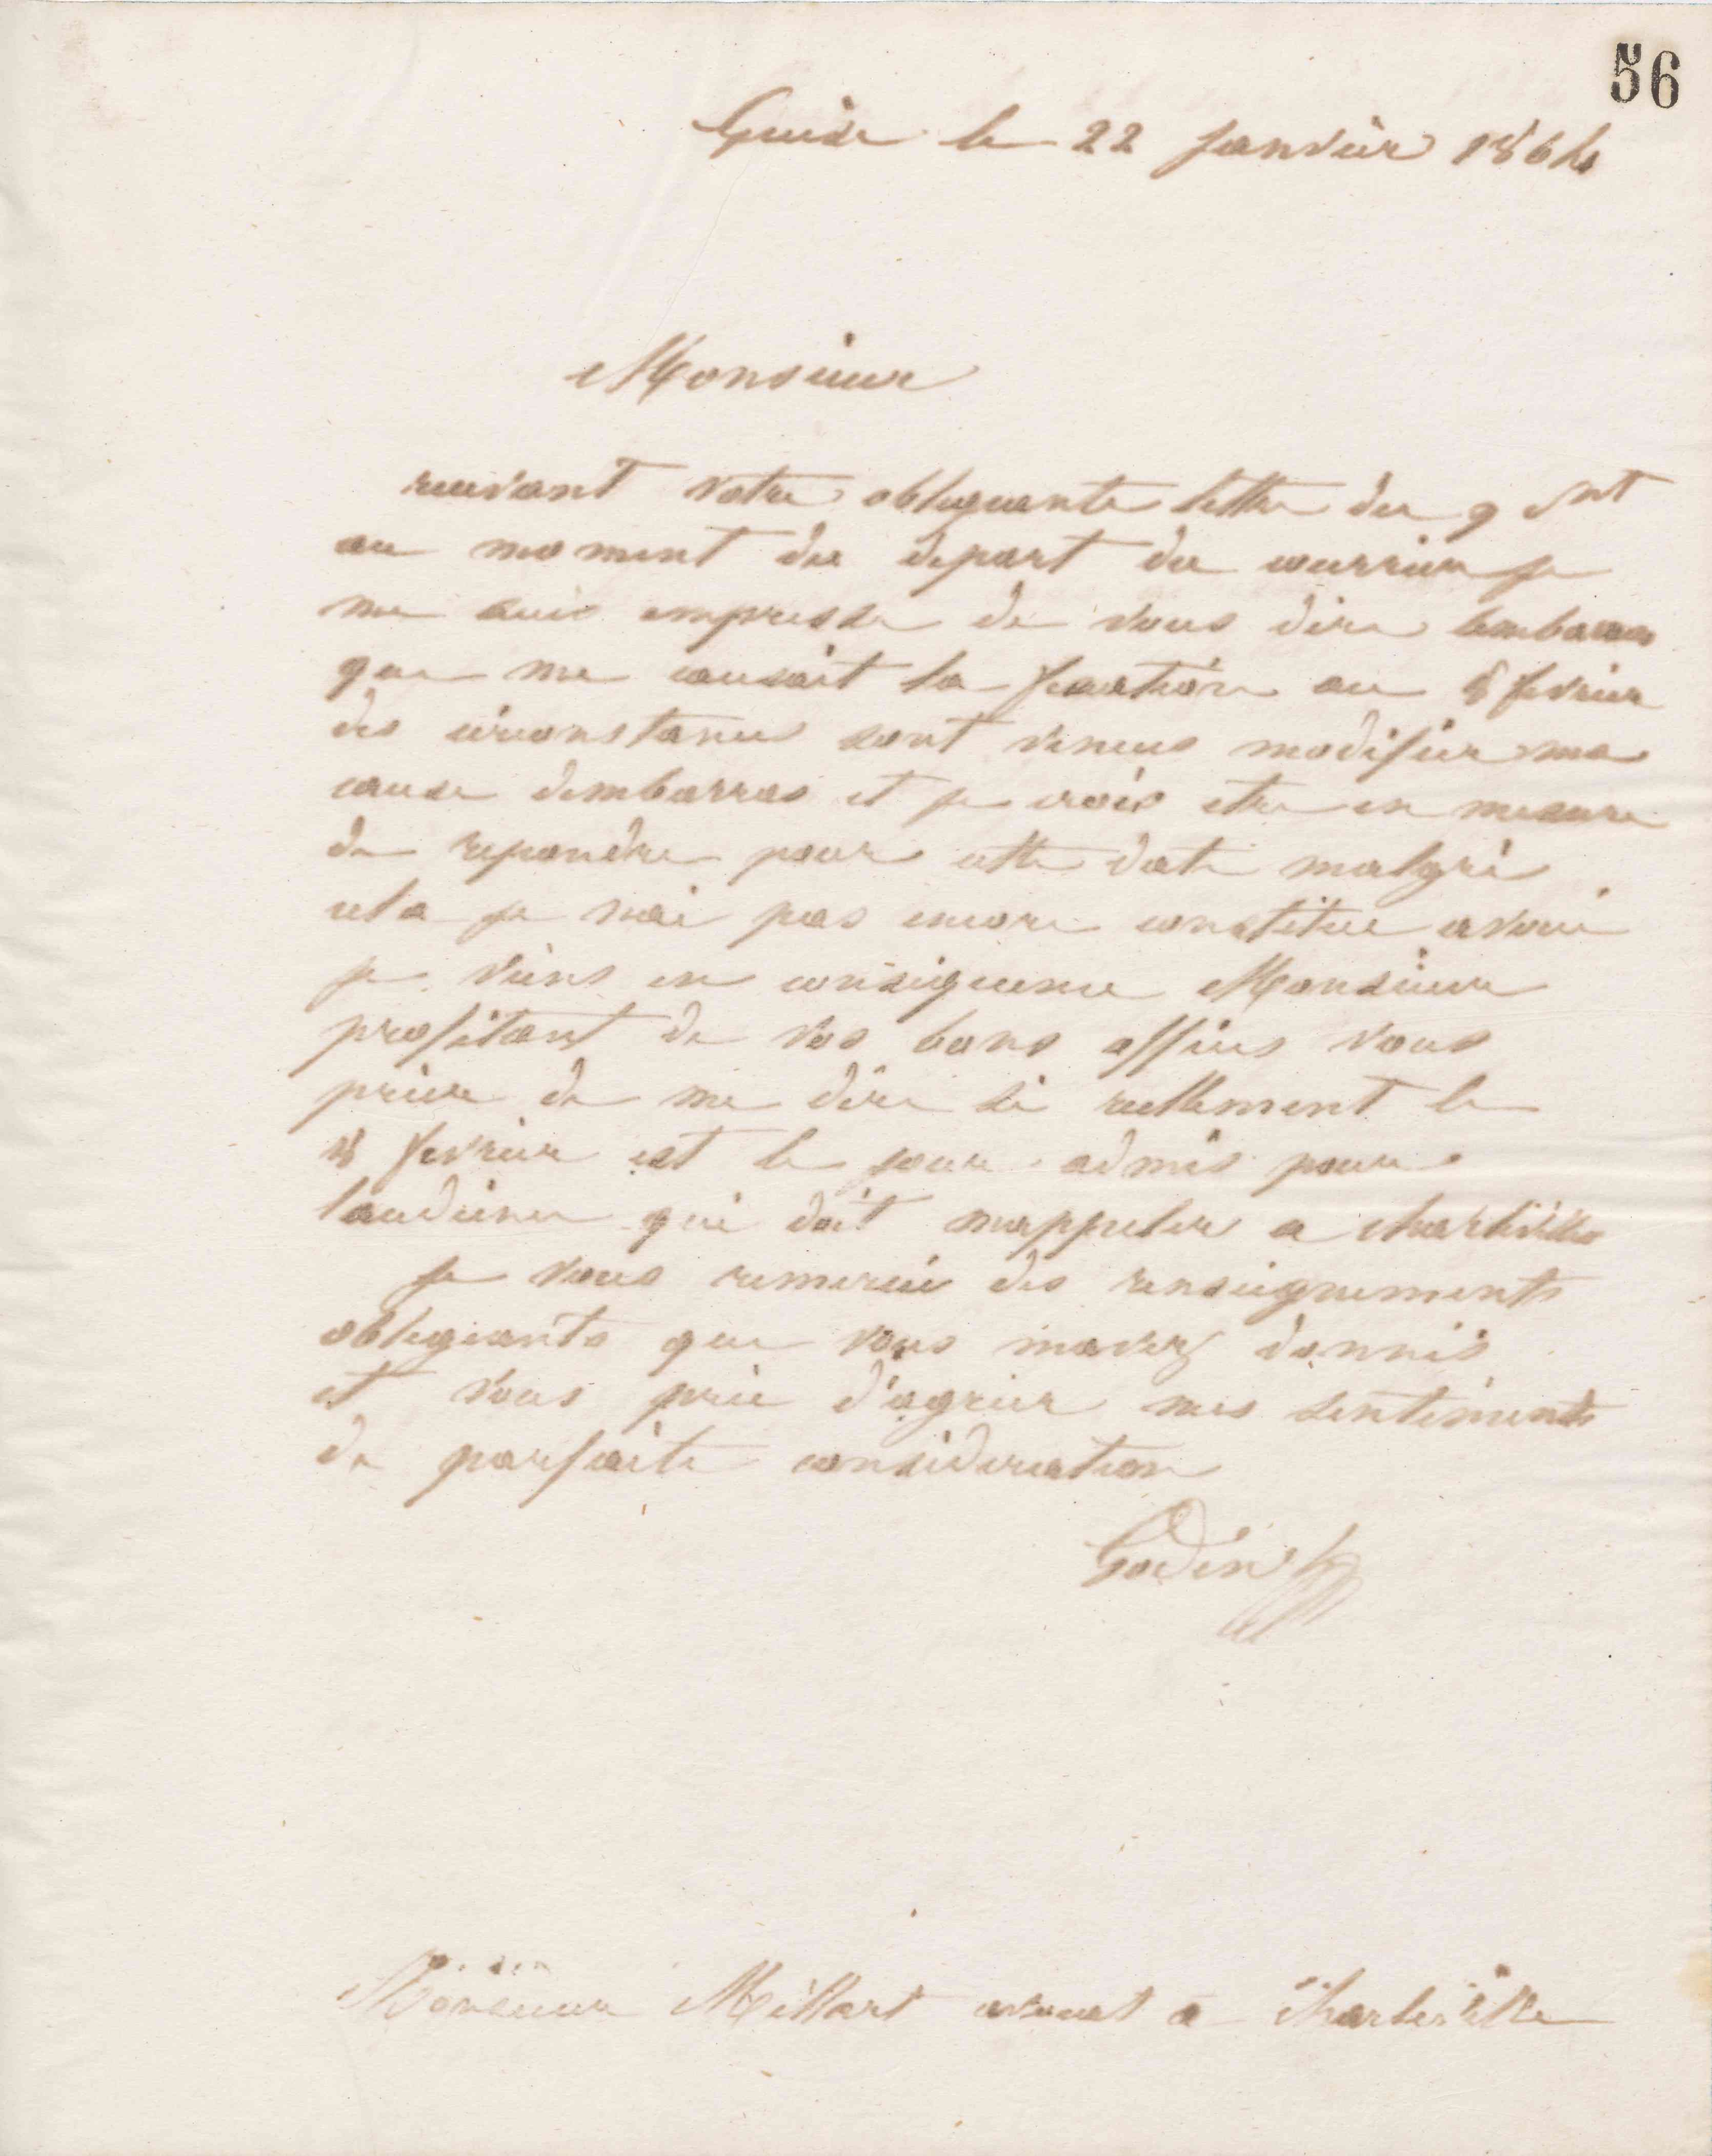 56
Guise le 22 Janvier 1864
Monsieur
recevant votre obligeante lettre du 9 ct
au moment du depart du courrier je
me suis empressé de vous dire lembarras
que me causait la fixation au 8 fevrier
des circonstances sont venues modifier ma
cause dembarras et je crois etre en mesure
de repondre pour cette date malgré
cela je nai pas encore constitue avoué
je viens en consequence Monsieur
profitant de vos bons offices vous
prier de me dire si reellement le
8 fevrier est le jour admis pour
laudience qui doit mappeler a charleville
je vous remercie des renseignements
obligeants que vous mavez donnés
et vous prie d'agreer mes sentiments
de parfaite consideration
Godin
Monsieur Millart avocat a Charleville